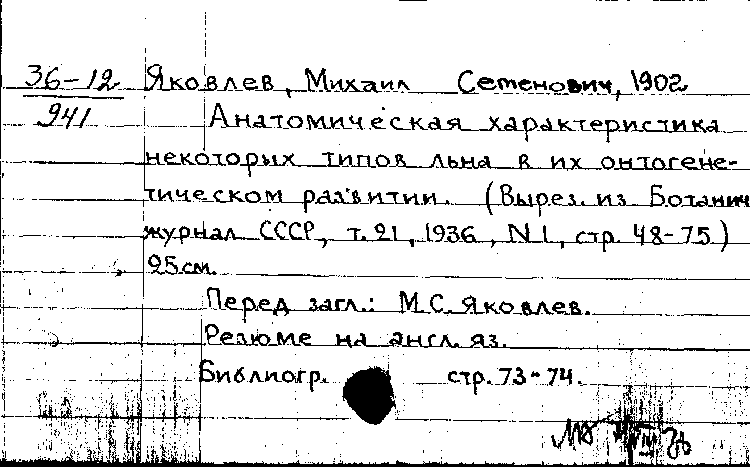 36-12 Яковлев, Михаил Семенович, 1902
941 Анатомическая характеристика
некоторых типов льна в их онтогене-
тическом развитии. (Вырез. из Ботанич
журнал СССР, т. 21, 1936, N 1, стр. 48-75)
25 см.
Перед загл.: М.С. Яковлев.
Резюме на англ. яз.
Библиогр. стр. 73-74.